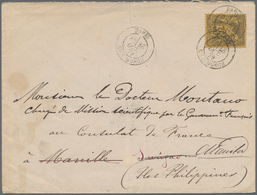 Monsieur le Docteur Montano
Chargé de Mission Scientifique par le Gouvernement Français
au Consulat de France
à Manille
(Iles Philippines)